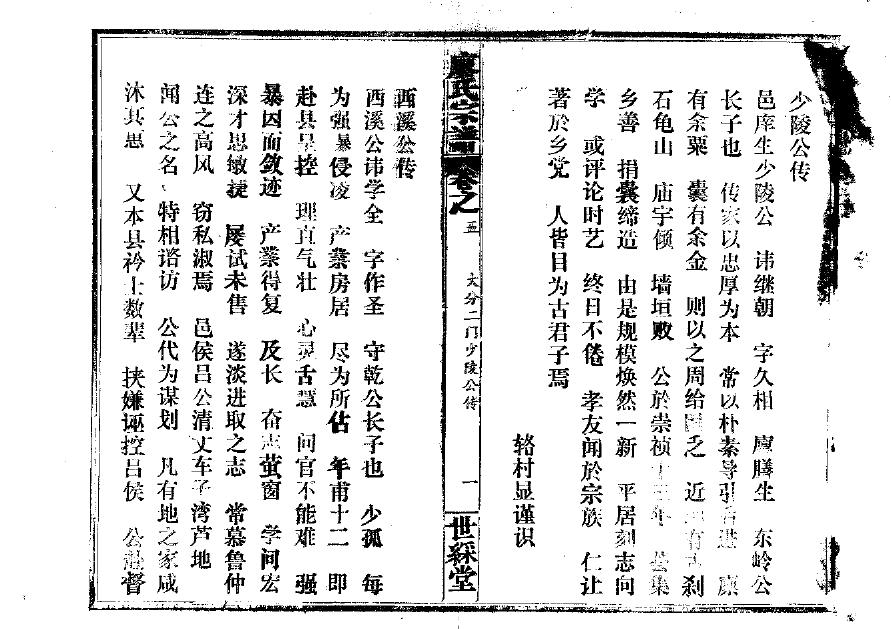 少陵公传
邑庠生少陵公 讳继朝 字久相 廪膳生 东岭公
长子也 传家以忠厚为本 常以朴素导引后进 廪
有余粟 囊有余金 则以之周给 乏 近 有古刹
石龟山 庙宇倾 墙垣败 公於崇祯十三年 募集
乡善 捐囊缔造 由是规模焕然一新 平居刻志向
学 或评论时艺 终日不倦 孝友闻於宗族 仁让
著於乡党 人皆目为古君子焉
辂村显谨识
廖氏宗谱 卷之五 大分二门少陵公传 一 世綵堂
西溪公传
西溪公讳学全 字作圣 守乾公长子也 少孤 每
为强暴侵凌 产業房居 尽为所估 年甫十二 即
赴县呈控 理直气壮 心灵舌慧 问官不能难 强
暴因而敛迹 产業得复 及长 奋志萤窗 学问宏
深才思敏捷 屡试未售 遂淡进取之志 常慕鲁仲
连之高风 窃私淑焉 邑侯吕公清丈车子湾芦地
闻公之名 特相谘访 公代为谋划 凡有地之家咸
沐其恩 又本县衿士数辈 挟嫌诬控吕侯 公赴督